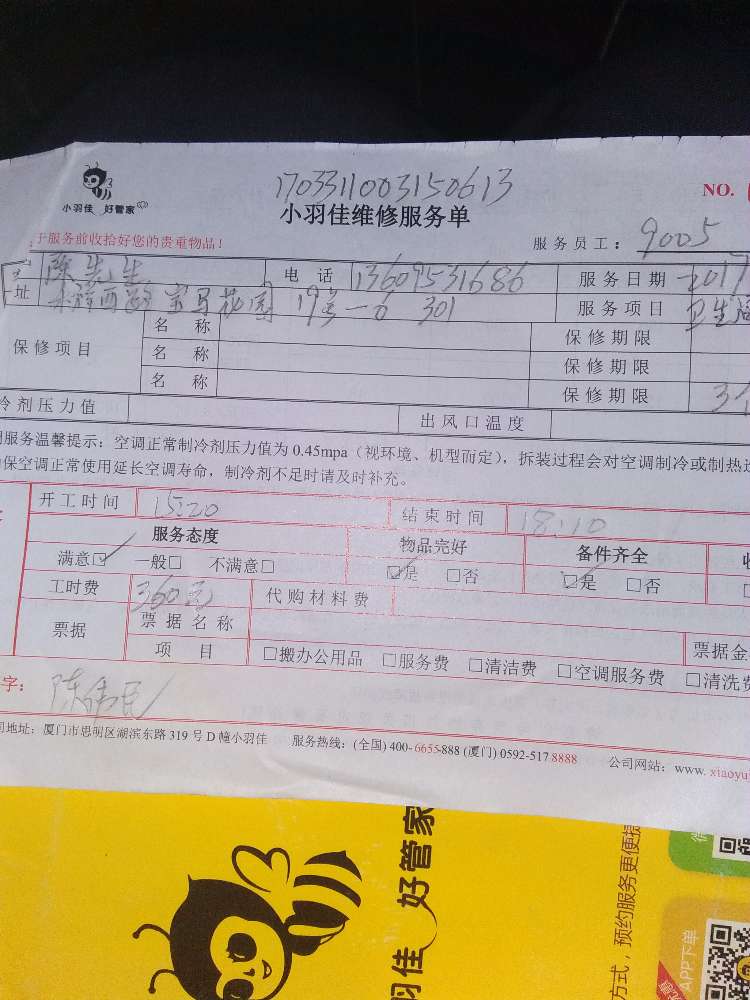 1703311003150613
小羽佳 好管家
NO.
小羽佳维修服务单
于服务前收拾好您的贵重物品！
服务员工： 9005
陈先生 电话 13609531686 服务日期 2017
址 宝马花园 19号-6 301 服务项目 卫生
保修项目
名称 保修期限
名称 保修期限
名称 保修期限 3个
冷剂压力值 出风口温度
调服务温馨提示：空调正常制冷剂压力值为 0.45mpa（视环境、机型而定），拆装过程会对空调制冷或制热
保空调正常使用延长空调寿命，制冷剂不足时请及时补充。
开工时间 15:20 结束时间 18:10
服务态度 物品完好 备件齐全
满意☑ 一般□ 不满意□ ☑是 □否 ☑是 □否
工时费 360元 代购材料费
票据 票据名称 票据金
项目 □搬办公用品 □服务费 □清洁费 □空调服务费 □清洗费
字：
司地址：厦门市思明区湖滨东路 319 号 D 幢小羽佳 服务热线：(全国) 400-6655-888 (厦门) 0592-517 8888 公司网站：www. xiaoyu
羽佳 好管家
方式，预约服务更便捷
APP下单